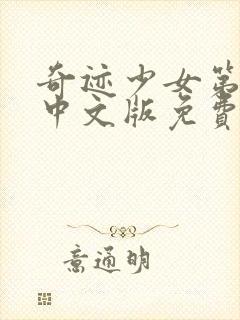 奇迹少女第
中文版免费
意通明